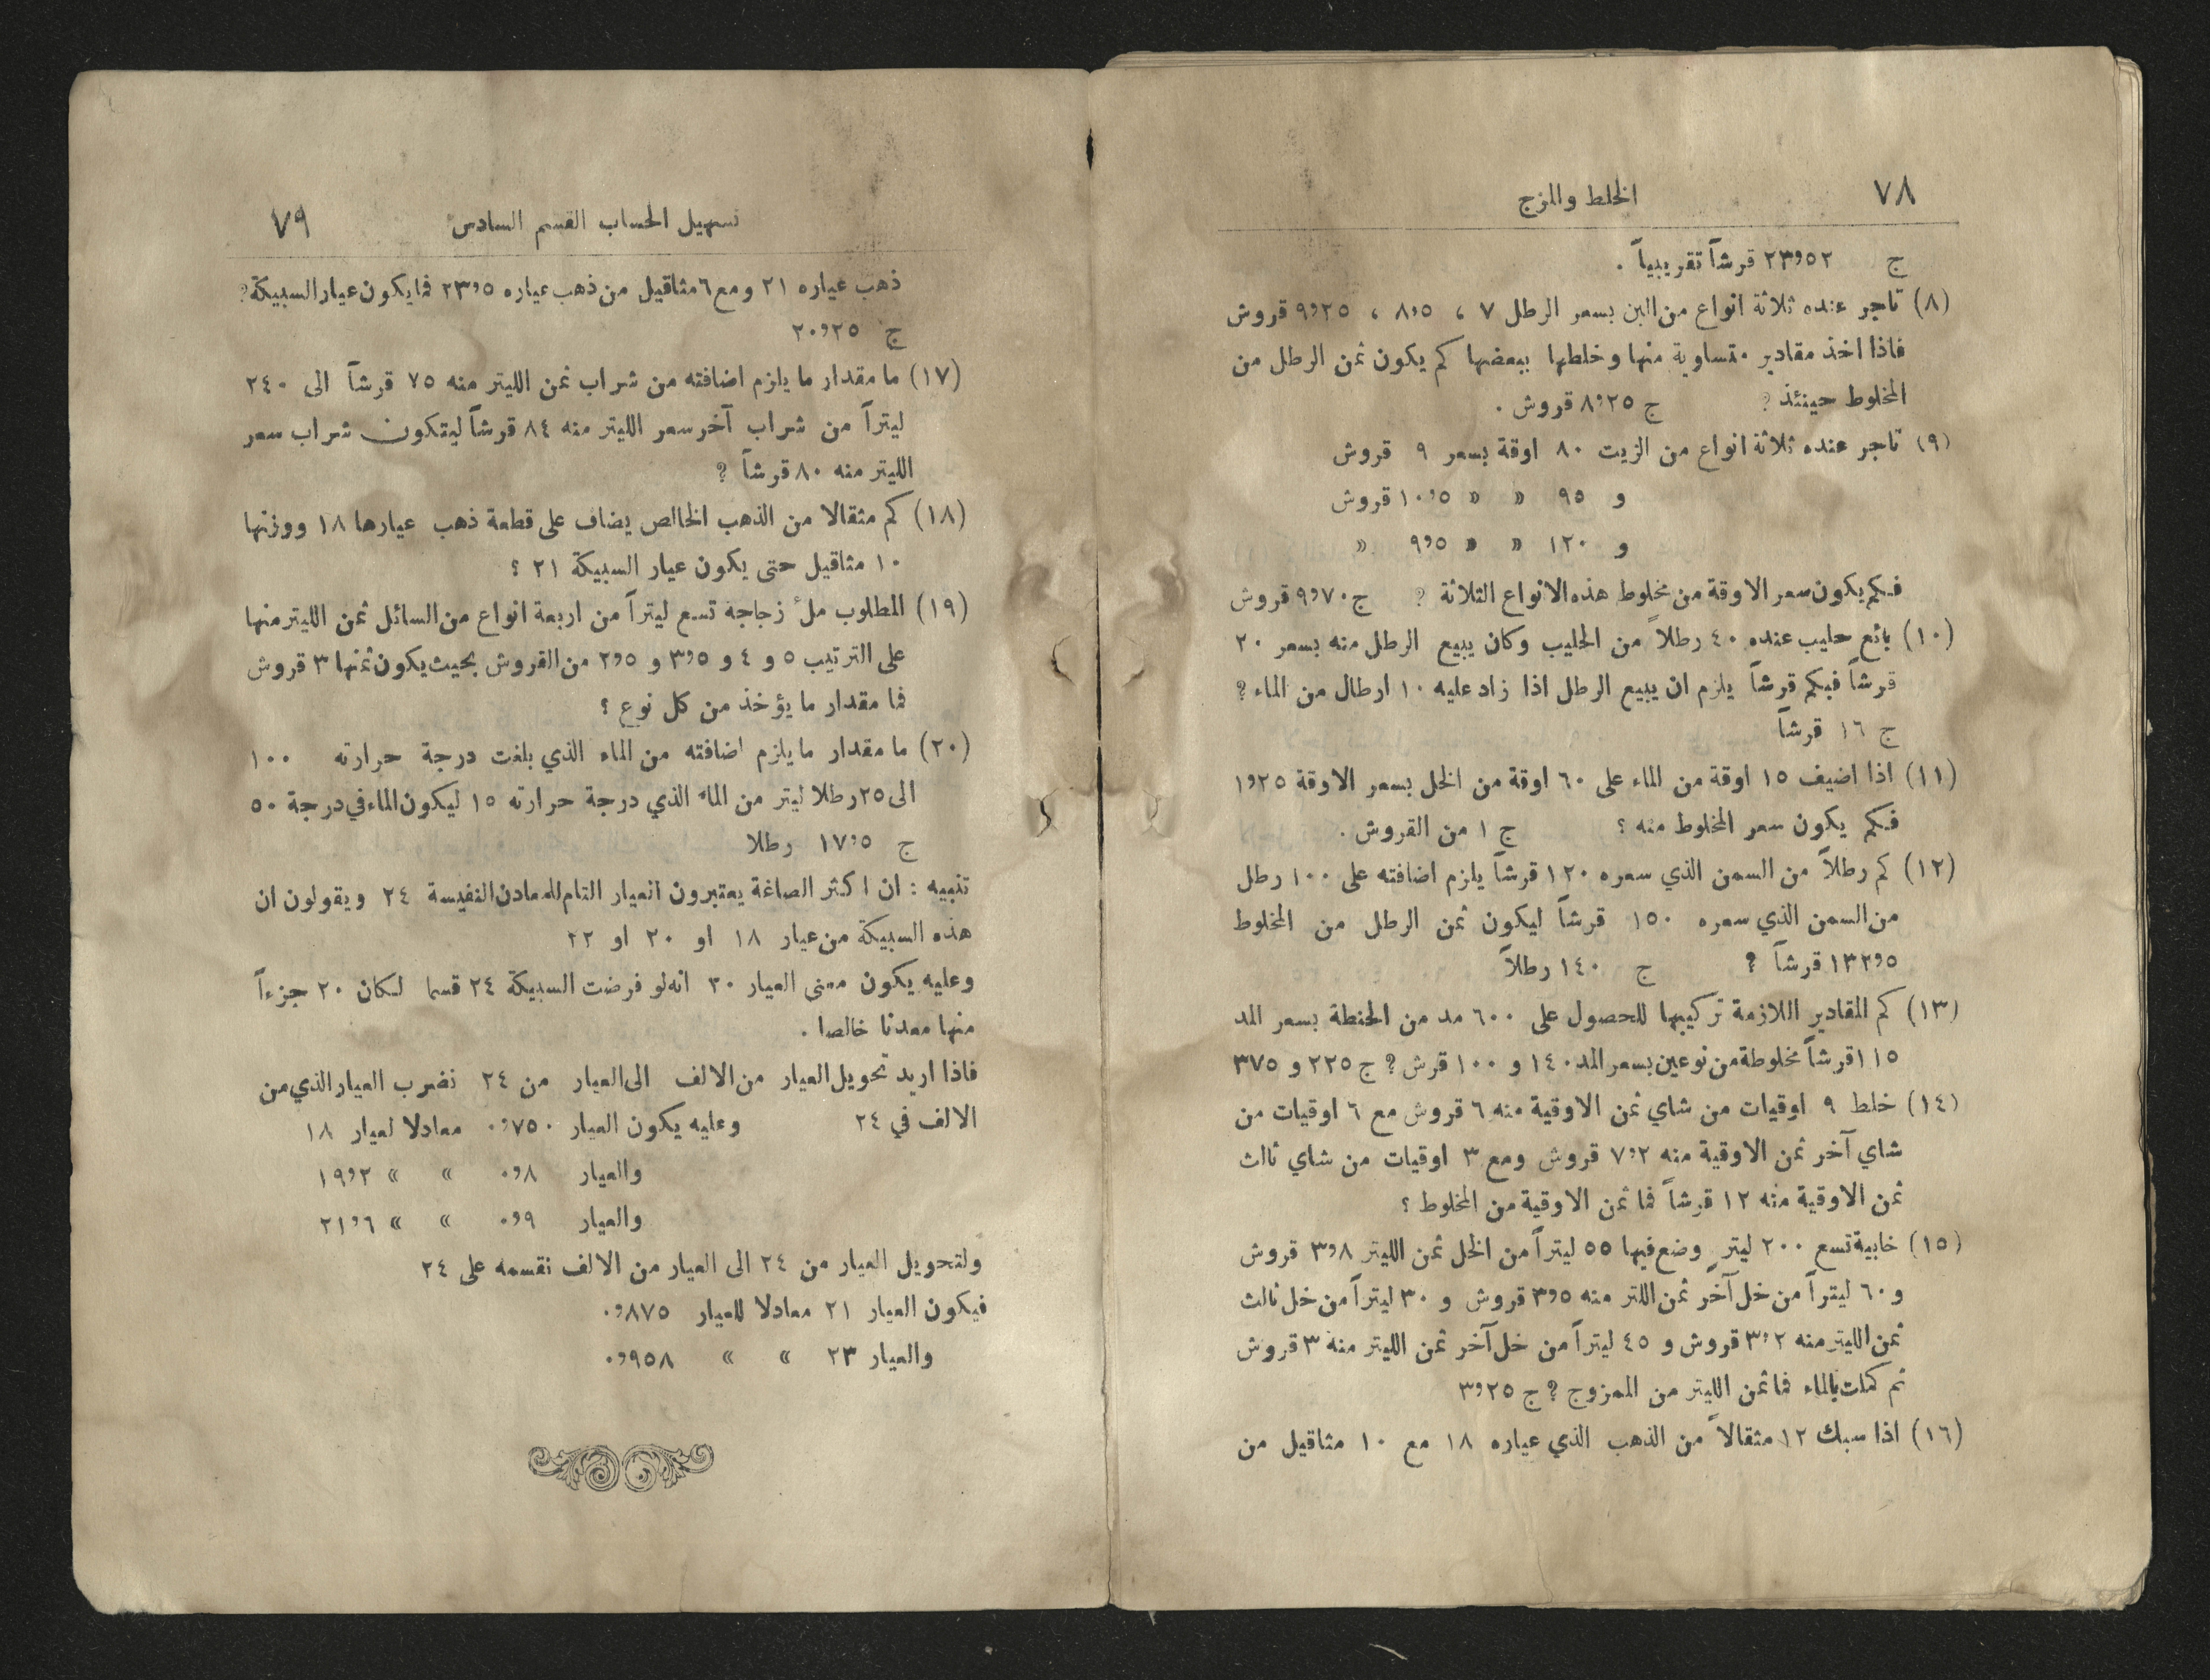 ٧٨ الخلط والمزج
ج ٢٣٫٥٢ قرشاً تقريبياً .
(٨) تاجر عنده ثلاثة انواع من البن بسعر الرطل ٧ ، ٨٫٥ ، ٩٫٢٥ قروش
فاذا اخذ مقادير متساوية منها وخلطها ببعضها كم يكون ثمن الرطل من
المخلوط حينئذ ? ج ٨٫٢٥ قروش .
(٩) تاجر عنده ثلاثة انواع من الزيت ٨٠ اوقة بسعر ٩ قروش
و ٩٥ « « ١٠٫٥ قروش
و ١٢٠ « « ٩٫٥ «
فكم يكون سعر الاوقة من مخلوط هذه الانواع الثلاثة ? ج ٩٫٧٠ قروش
(١٠) بائع حليب عنده ٤٠ رطلاً من الحليب وكان يبيع الرطل منه بسعر ٢٠
قرشاً فبكم قرشاً يلزم ان يبيع الرطل اذا زاد عليه ١٠ ارطال من الماء ?
ج ١٦ قرشاً
(١١) اذا اضيف ١٥ اوقة من الماء على ٦٠ اوقة من الخل بسعر الاوقة ١٫٢٥
فكم يكون سعر المخلوط منه ؟ ج ١ من القروش .
(١٢) كم رطلاً من السمن الذي سعره ١٢٠ قرشاً يلزم اضافته على ١٠٠ رطل
من السمن الذي سعره ١٥٠ قرشاً ليكون ثمن الرطل من المخلوط
١٣٢٫٥ قرشاً ? ج ١٤٠ رطلاً
(١٣) كم المقادير اللازمة تركيبها للحصول على ٦٠٠ مد من الحنطة بسعر المد
١١٥ قرشاً مخلوطة من نوعين بسعر المد ١٤٠ و ١٠٠ قرش ? ج ٢٢٥ و ٣٧٥
(١٤) خلط ٩ اوقيات من شاي ثمن الاوقية منه ٦ قروش مع ٦ اوقيات من
شاي آخر ثمن الاوقية منه ٧٫٢ قروش ومع ٣ اوقيات من شاي ثالث
ثمن الاوقية منه ١٢ قرشاً فما ثمن الاوقية من المخلوط ؟
(١٥) خابية تسع ٢٠٠ ليتر وضع فيها ٥٥ ليتراً من الخل ثمن الليتر ٣٫٨ قروش
و ٦٠ ليتراً من خل آخر ثمن اللتر منه ٣٫٥ قروش و ٣٠ ليتراً من خل ثالث
ثمن الليتر منه ٣٫٢ قروش و ٤٥ ليتراً من خل آخر ثمن الليتر منه ٣ قروش
ثم كملت بالماء فما ثمن الليتر من الممزوج ? ج ٣٫٢٥
(١٦) اذا سبك ١٢ مثقالاً من الذهب الذي عياره ١٨ مع ١٠ مثاقيل من
تسهيل الحساب القسم السادس ٧٩
ذهب عياره ٢١ ومع ٦ مثاقيل من ذهب عياره ٢٣٫٥ فما يكون عيار السبيكة ?
ج ٢٠٫٢٥
(١٧) ما مقدار ما يلزم اضافته من شراب ثمن الليتر منه ٧٥ قرشاً الى ٢٤٠
ليتراً من شراب آخر سعر الليتر منه ٨٤ قرشاً ليتكون شراب سعر
الليتر منه ٨٠ قرشاً ?
(١٨) كم مثقالا من الذهب الخالص يضاف على قطعة ذهب عيارها ١٨ ووزنها
١٠ مثاقيل حتى يكون عيار السبيكة ٢١ ؟
(١٩) المطلوب ملء زجاجة تسع ليتراً من اربعة انواع من السائل ثمن الليتر منها
على الترتيب ٥ و ٤ و ٣٫٥ و ٢٫٥ من القروش بحيث يكون ثمنها ٣ قروش
فما مقدار ما يؤخذ من كل نوع ؟
(٢٠) ما مقدار ما يلزم اضافته من الماء الذي بلغت درجة حرارته ١٠٠
الى ٢٥ رطلا ليتر من الماء الذي درجة حرارته ١٥ ليكون الماء في درجة ٥٠
ج ١٧٫٥ رطلا
تنبيه : ان اكثر الصاغة يعتبرون العيار التام للمعادن النفيسة ٢٤ ويقولون ان
هذه السبيكة من عيار ١٨ او ٢٠ او ٢٢
وعليه يكون معنى العيار ٢٠ انه لو فرضت السبيكة ٢٤ قسما لكان ٢٠ جزءاً
منها معدنا خالصا .
فاذا اريد تحويل العيار من الالف الى العيار من ٢٤ نضرب العيار الذي من
الالف في ٢٤ وعليه يكون العيار ٠٫٧٥٠ معادلا لعيار ١٨
والعيار ٠٫٨ » » ١٩٫٢
والعيار ٠٫٩ » » ٢١٫٦
ولتحويل العيار من ٢٤ الى العيار من الالف نقسمه على ٢٤
فيكون العيار ٢١ معادلا للعيار ٠٫٨٧٥
والعيار ٢٣ » » ٠٫٩٥٨